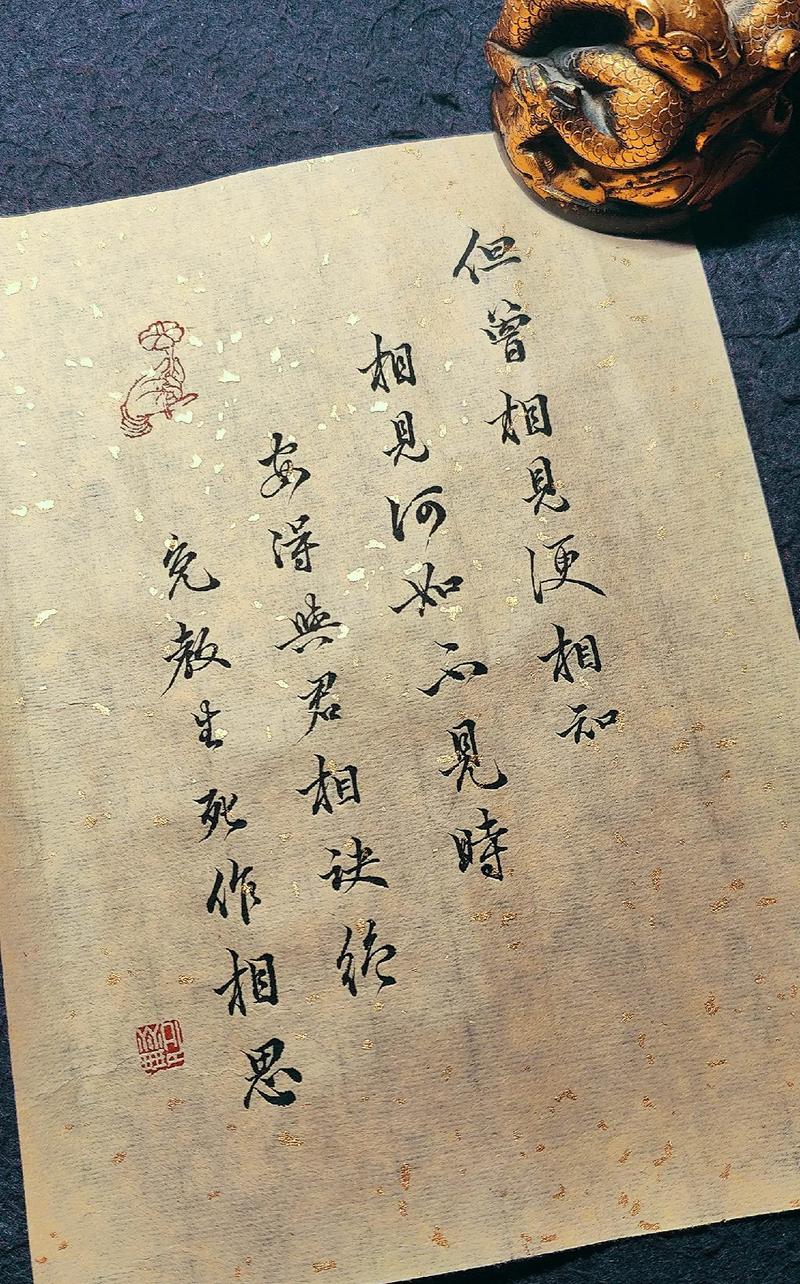 但曾相見便相知
相見何如不見時
安得與君相訣絕
免教生死作相思